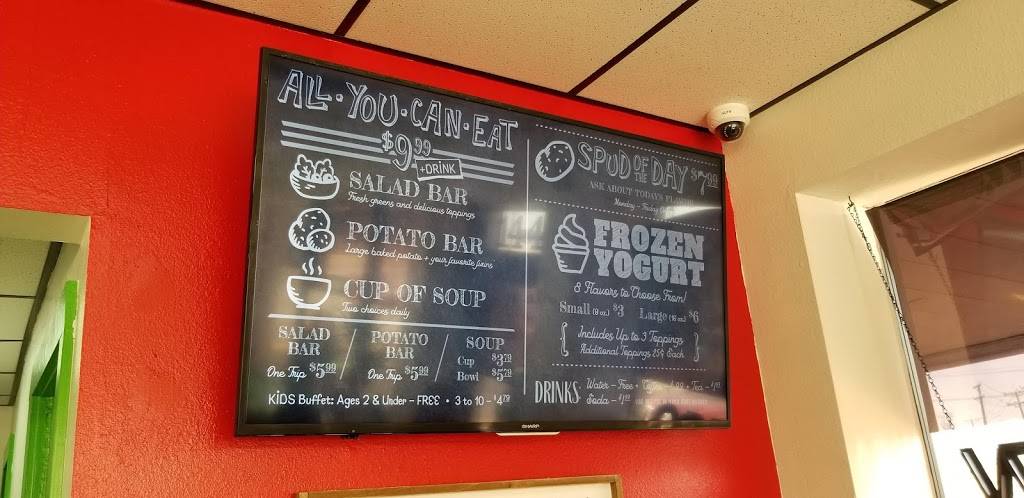 ALL·YOU·CAN·EAT
$9.99
+DRINK
SALAD BAR
Fresh greens and delicious toppings
POTATO BAR
Large baked potato + your favorite fixins'
CUP OF SOUP
Two choices daily
SALAD BAR
One Trip $5.99
POTATO BAR
One Trip $5.99
SOUP
Cup $3.79
Bowl $5.79
KIDS Buffet: Ages 2 & Under - FREE • 3 to 10 - $4.79
SPUD OF THE DAY $7.99
ASK ABOUT TODAY'S
Monday - Friday
FROZEN YOGURT
8 Flavors to Choose From!
Small (8 oz.) $3 Large (16 oz.) $6
Includes Up to 3 Toppings
Additional Toppings 25¢ Each
DRINKS: Water - Free • Tea
Soda
SHARP